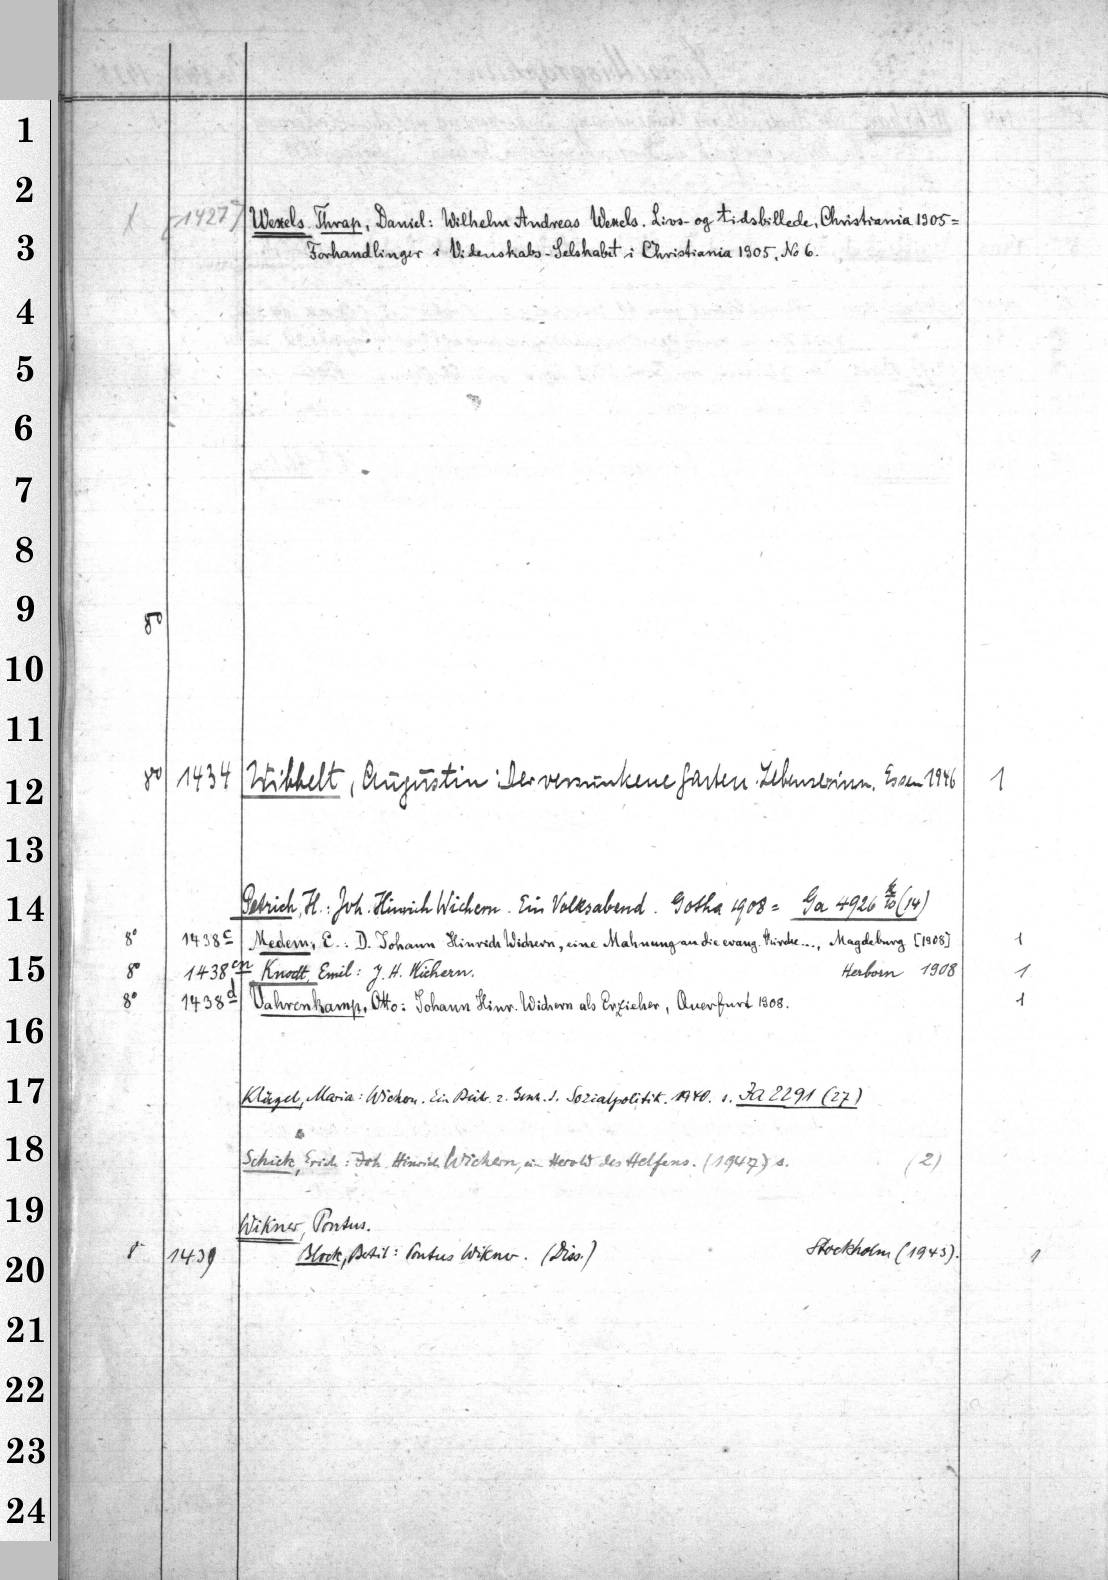 1
2
[1427] Wexels. Thrap, Daniel: Wilhelm Andreas Wexels. Livs- og tidsbillede, Christiania 1905 =
3 Forhandlinger i Videnskabs-Selskabet i Christiania 1905, No 6.
4
5
6
7
8
9 8º
10
11
12 8º 1434 Wibbelt, Augustin: Der versunkene Garten. Essen 1946 1
13
14 Petrich, H.: Joh. Hinrich Wichern. Ein Volksabend. Gotha 1908 = Ga 4926 (14)
8º 1438 c Medem, E.: D. Johann Hinrich Wichern, eine Mahnung an die evang. Kirche..., Magdeburg [1908] 1
15 8º 1438 cn Knodt, Emil: J. H. Wichern. Herborn 1908 1
8º 1438 d Vahrenkamp, Otto: Johann Hinr. Wichern als Erzieher, Querfurt 1908. 1
16
17 Klügel, Maria: Wichern. Ein Beitr. z. Sozialpolitik. 1940. s. Ja 2291 (27)
18 Schick, Erich: Joh. Hinrich Wichern, ein Herold des Helfens. (1947) s. (2)
19 Wikner, Pontus.
20 8º 1439 Block, Bertil: Pontus Wikner. (Diss.) Stockholm (1943). 1
21
22
23
24